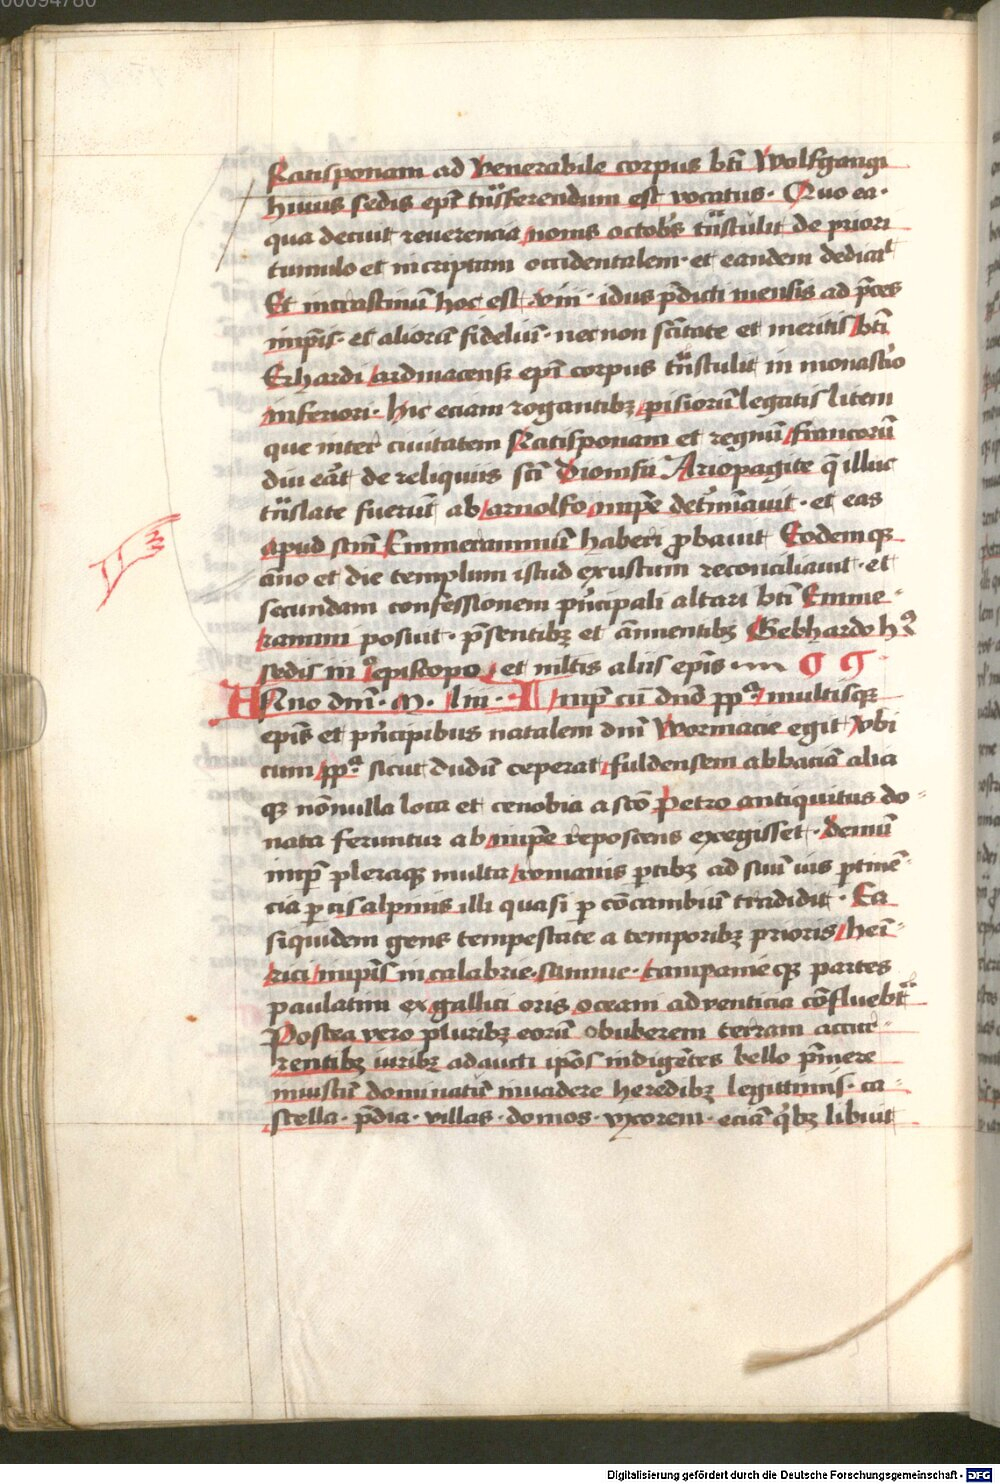 00094780
Ratisponam ad venerabile corpus bti Wolfgangi
huius sedis epi tnsferendum est vocatus · Quo ea ·
qua decuit reuerencia nonis octobs tnstulit de priori
tumulo et in criptam occidentalem · et eandem dedicat
Et incrastinu hoc est · viii · idus pdicti mensis ad pces
impis · et alioru fideliu · necnon sctitate et meritis bti
Erhardi ardmacensz epi corpus tnstulit in monastio
inferiori · hic eciam rogantibz pisioru legatis litem
que inter ciuitatem Ratisponam et regnu francoru
diu eat de reliquiis sci Dionisii Ariopagite q illuc
tnslate fuerut ab arnolfo impe detminauit · et eas
apud sctm Emmerammu haberi probauit Eodemqz
ano et die templum istud exustum reconciliauit · et
secundam confessionem pncipali altari bti Emme-
rammi posuit · psentibz et annuentibz Gebhardo h9
sedis iii episcopo et mltis aliis epis
Anno dni · M · liii · Imp cu dno pp multisqz
epis et pncipibus natalem dni Wormacie egit vbi
cum pp sicut dudu ceperat fuldensem abbacia alia
qz nonulla loca et cenobia a sco Petro antiquitus do-
nata feruntur ab impe reposcens exegisset · demu
imp pleraqz multa romanis ptibz ad suu ius ptine-
cia p cisalpinis illi quasi p cocambiu tradidit · Ea
siquidem gens tempestate a temporibz prioris hei-
rici impis in calabrie · samnie · campanie qz partes
paulatim ex gallici oris oceani adventicia cofluebt
Postea vero pluribz eoru ob uberem terram accur-
rentibz viribz adaucti ipos indigetes bello pmere
iniustu dominatu inuadere heredibz legittimis · ca-
stella · pdia · villas · domos · vxorem · ecia qbz libuit
Digitalisierung gefördert durch die Deutsche Forschungsgemeinschaft - DFG